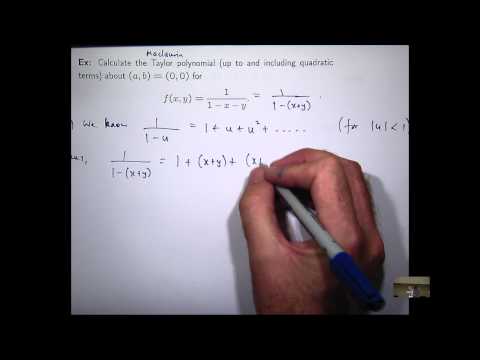 Maclaurin
Ex: Calculate the Taylor polynomial (up to and including quadratic
terms) about (a, b) = (0, 0) for
f(x, y) = 1/(1 − x − y) = 1/(1−(x+y))
we know 1/(1−u) = 1 + u + u² + ..... (for |u| < 1
1/(1−(x+y)) = 1 + (x+y) + (x+